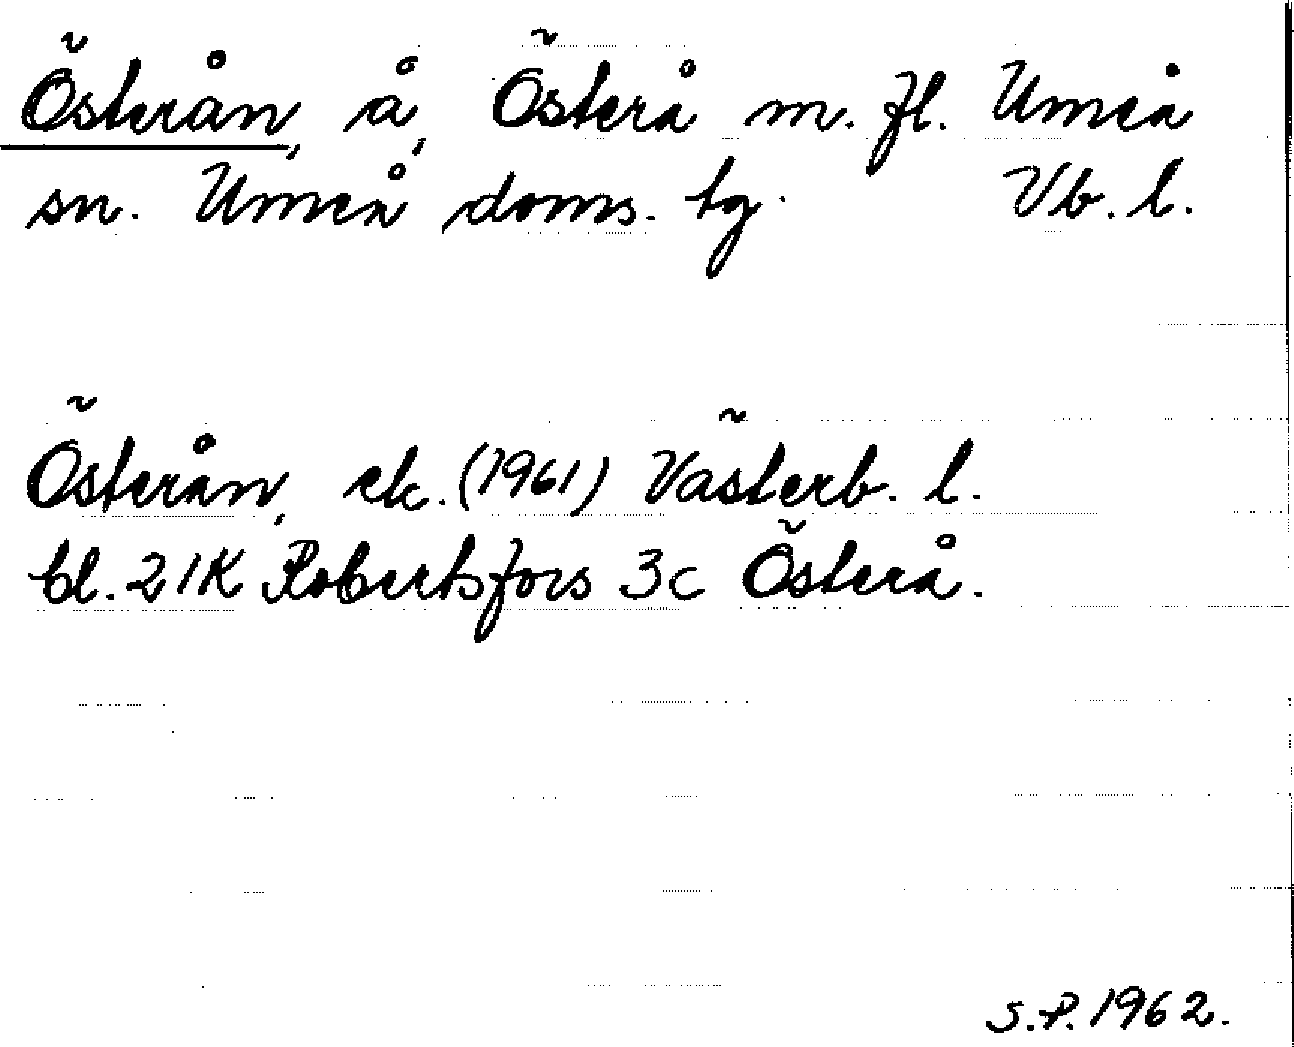 Österån, å, Österå m. fl. Umeå
sn. Umeå doms. tg. Vb. l.
Österån, ek. (1961) Västerb. l.
bl. 21K Robertsfors 3c Österå.
S.P. 1962.